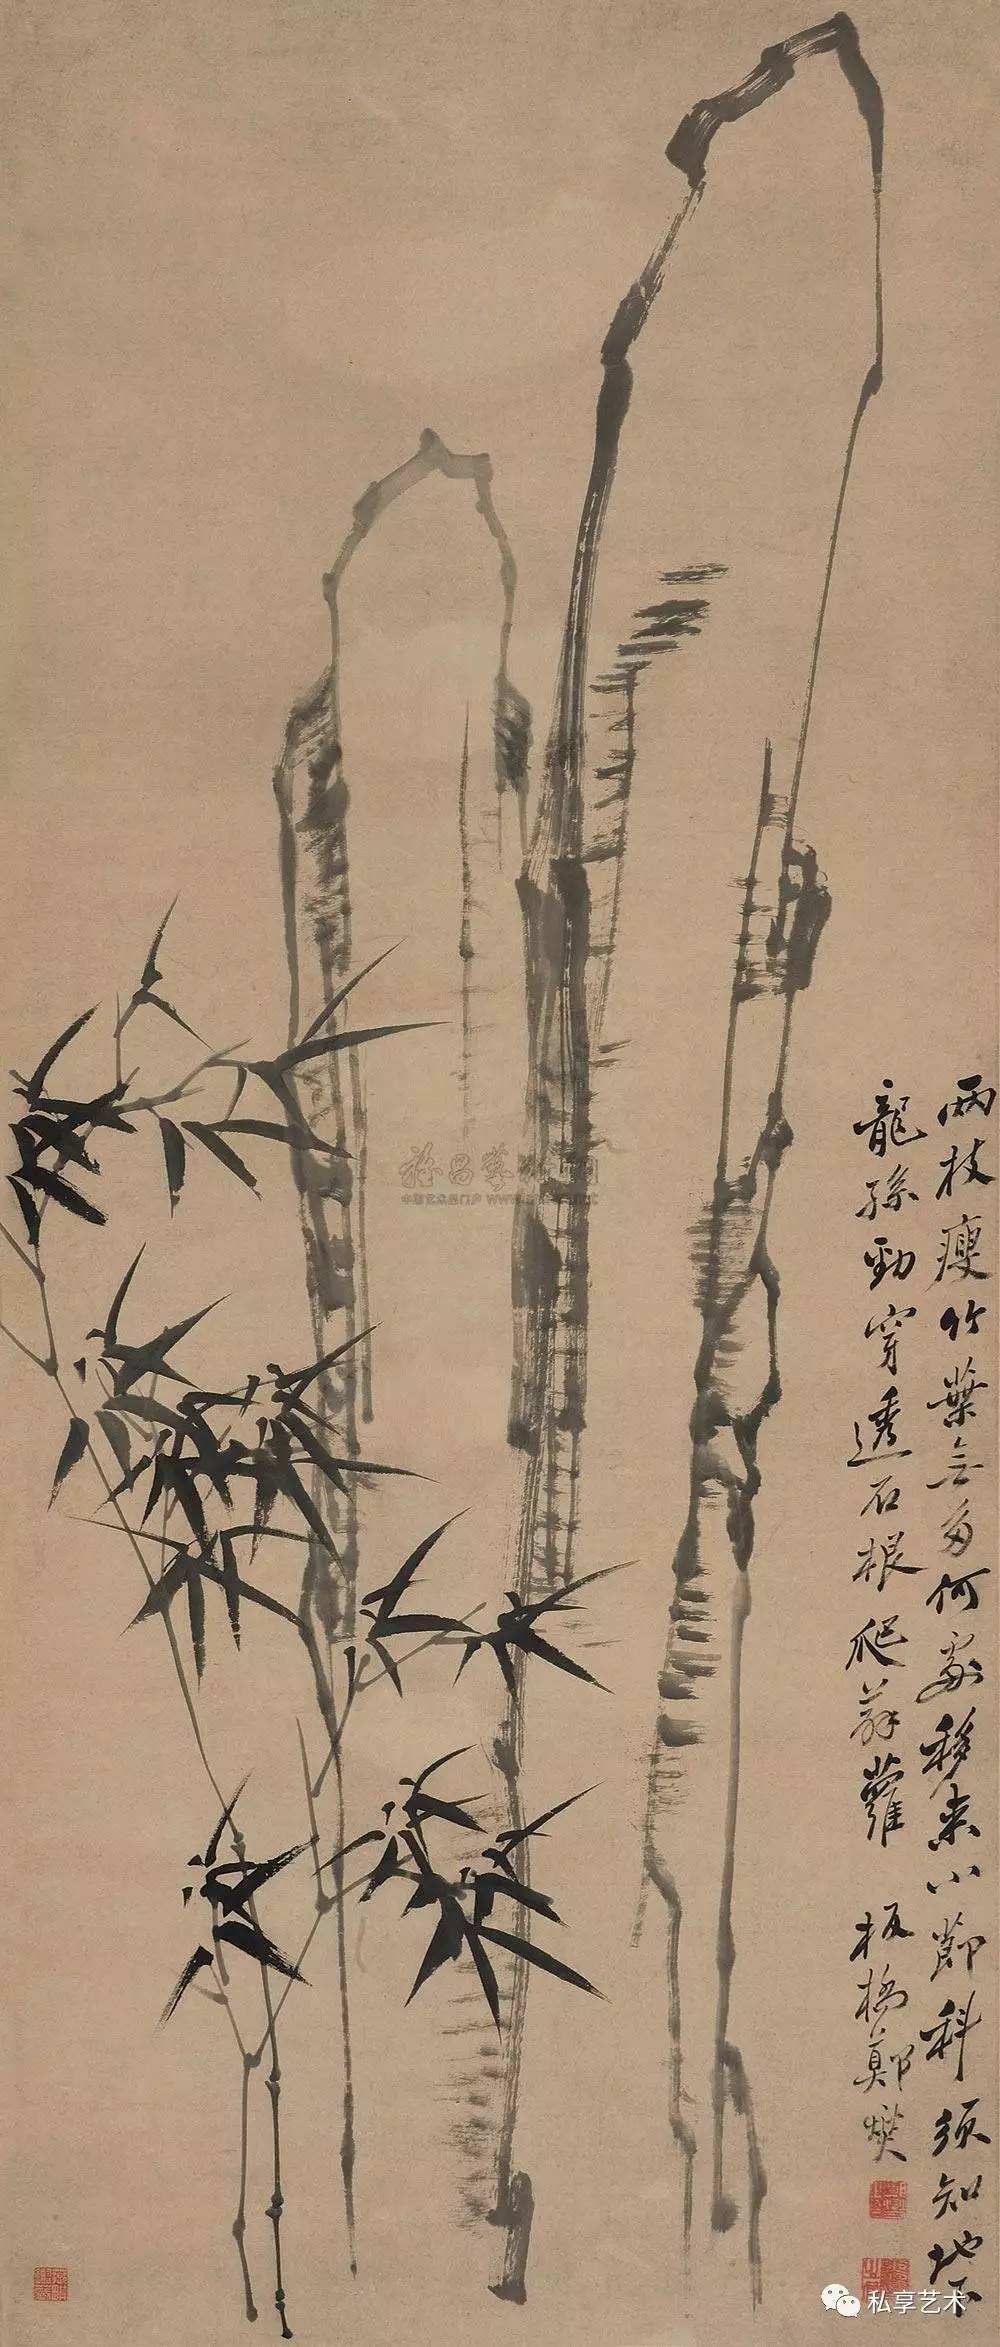 兩枝瘦竹葉無多何處移来小節科須知地下
龍孫勁穿透石根爬薜蘿 板橋鄭燮
私享艺术